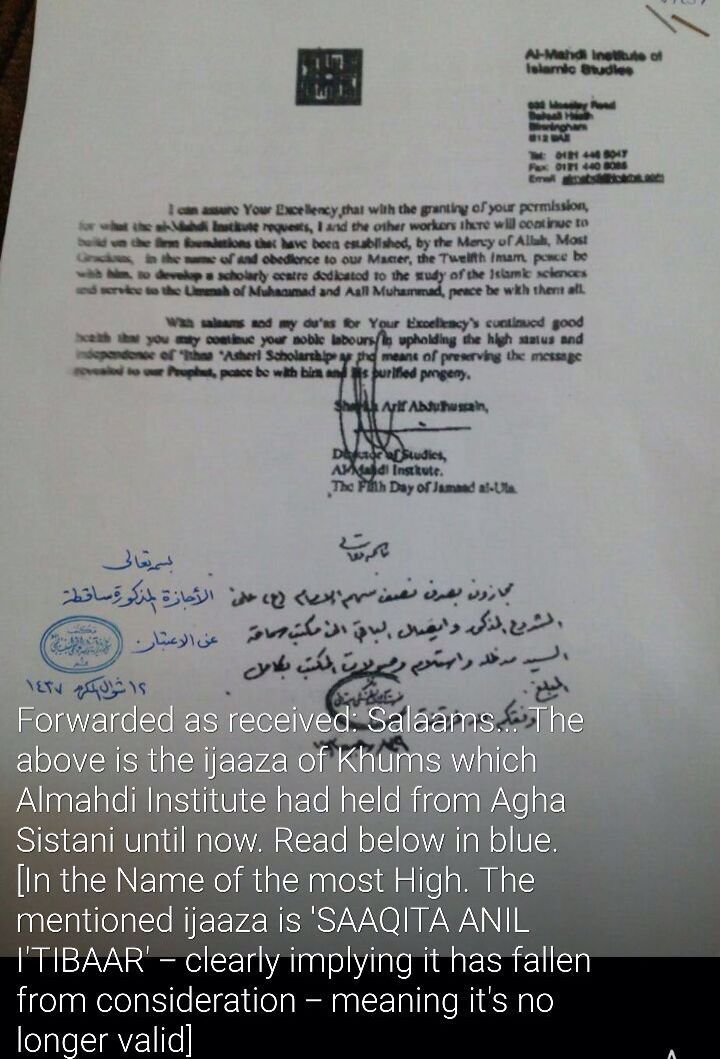 Al-Mahdi Institute of
Islamic Studies
Moseley Road
Balsall Heath
Birmingham
Tel: 0121 446 5047
Fax: 0121 440 5085
Email
I can assure Your Excellency,that with the granting of your permission,
for what the al-Mahdi Institute requests, I and the other workers there will continue to
build on the firm foundations that have been established, by the Mercy of Allah, Most
Gracious, in the name of and obedience to our Master, the Twelfth Imam, peace be
with him, to develop a scholarly centre dedicated to the study of the Islamic sciences
and service to the Ummah of Muhammad and Aali Muhammad, peace be with them all.
With salaams and my du'as for Your Excellency's continued good
health that you may continue your noble labours in upholding the high status and
independence of 'Ithna 'Asheri Scholarship as the means of preserving the message
revealed to our Prophet, peace be with him and his purified progeny.
Shaykh Arif Abdulhussain,
Director of Studies,
Al-Mahdi Institute.
The Fifth Day of Jamaad al-Ula
باسمه تعالى
مجازون بصرف نصف سهم الإمام (ع) على
المشروع المذكور وايصال الباقي الى مكتب سماحة
السيد مد ظله واستلام وصولات المكتب بكامل
المبلغ
بسمه تعالى
الأجازة المذكورة ساقطة
عن الاعتبار
١٢ شوال المكرم ١٤٣٧
Forwarded as received: Salaams... The
above is the ijaaza of Khums which
Almahdi Institute had held from Agha
Sistani until now. Read below in blue.
[In the Name of the most High. The
mentioned ijaaza is 'SAAQITA ANIL
I'TIBAAR' – clearly implying it has fallen
from consideration – meaning it's no
longer valid]